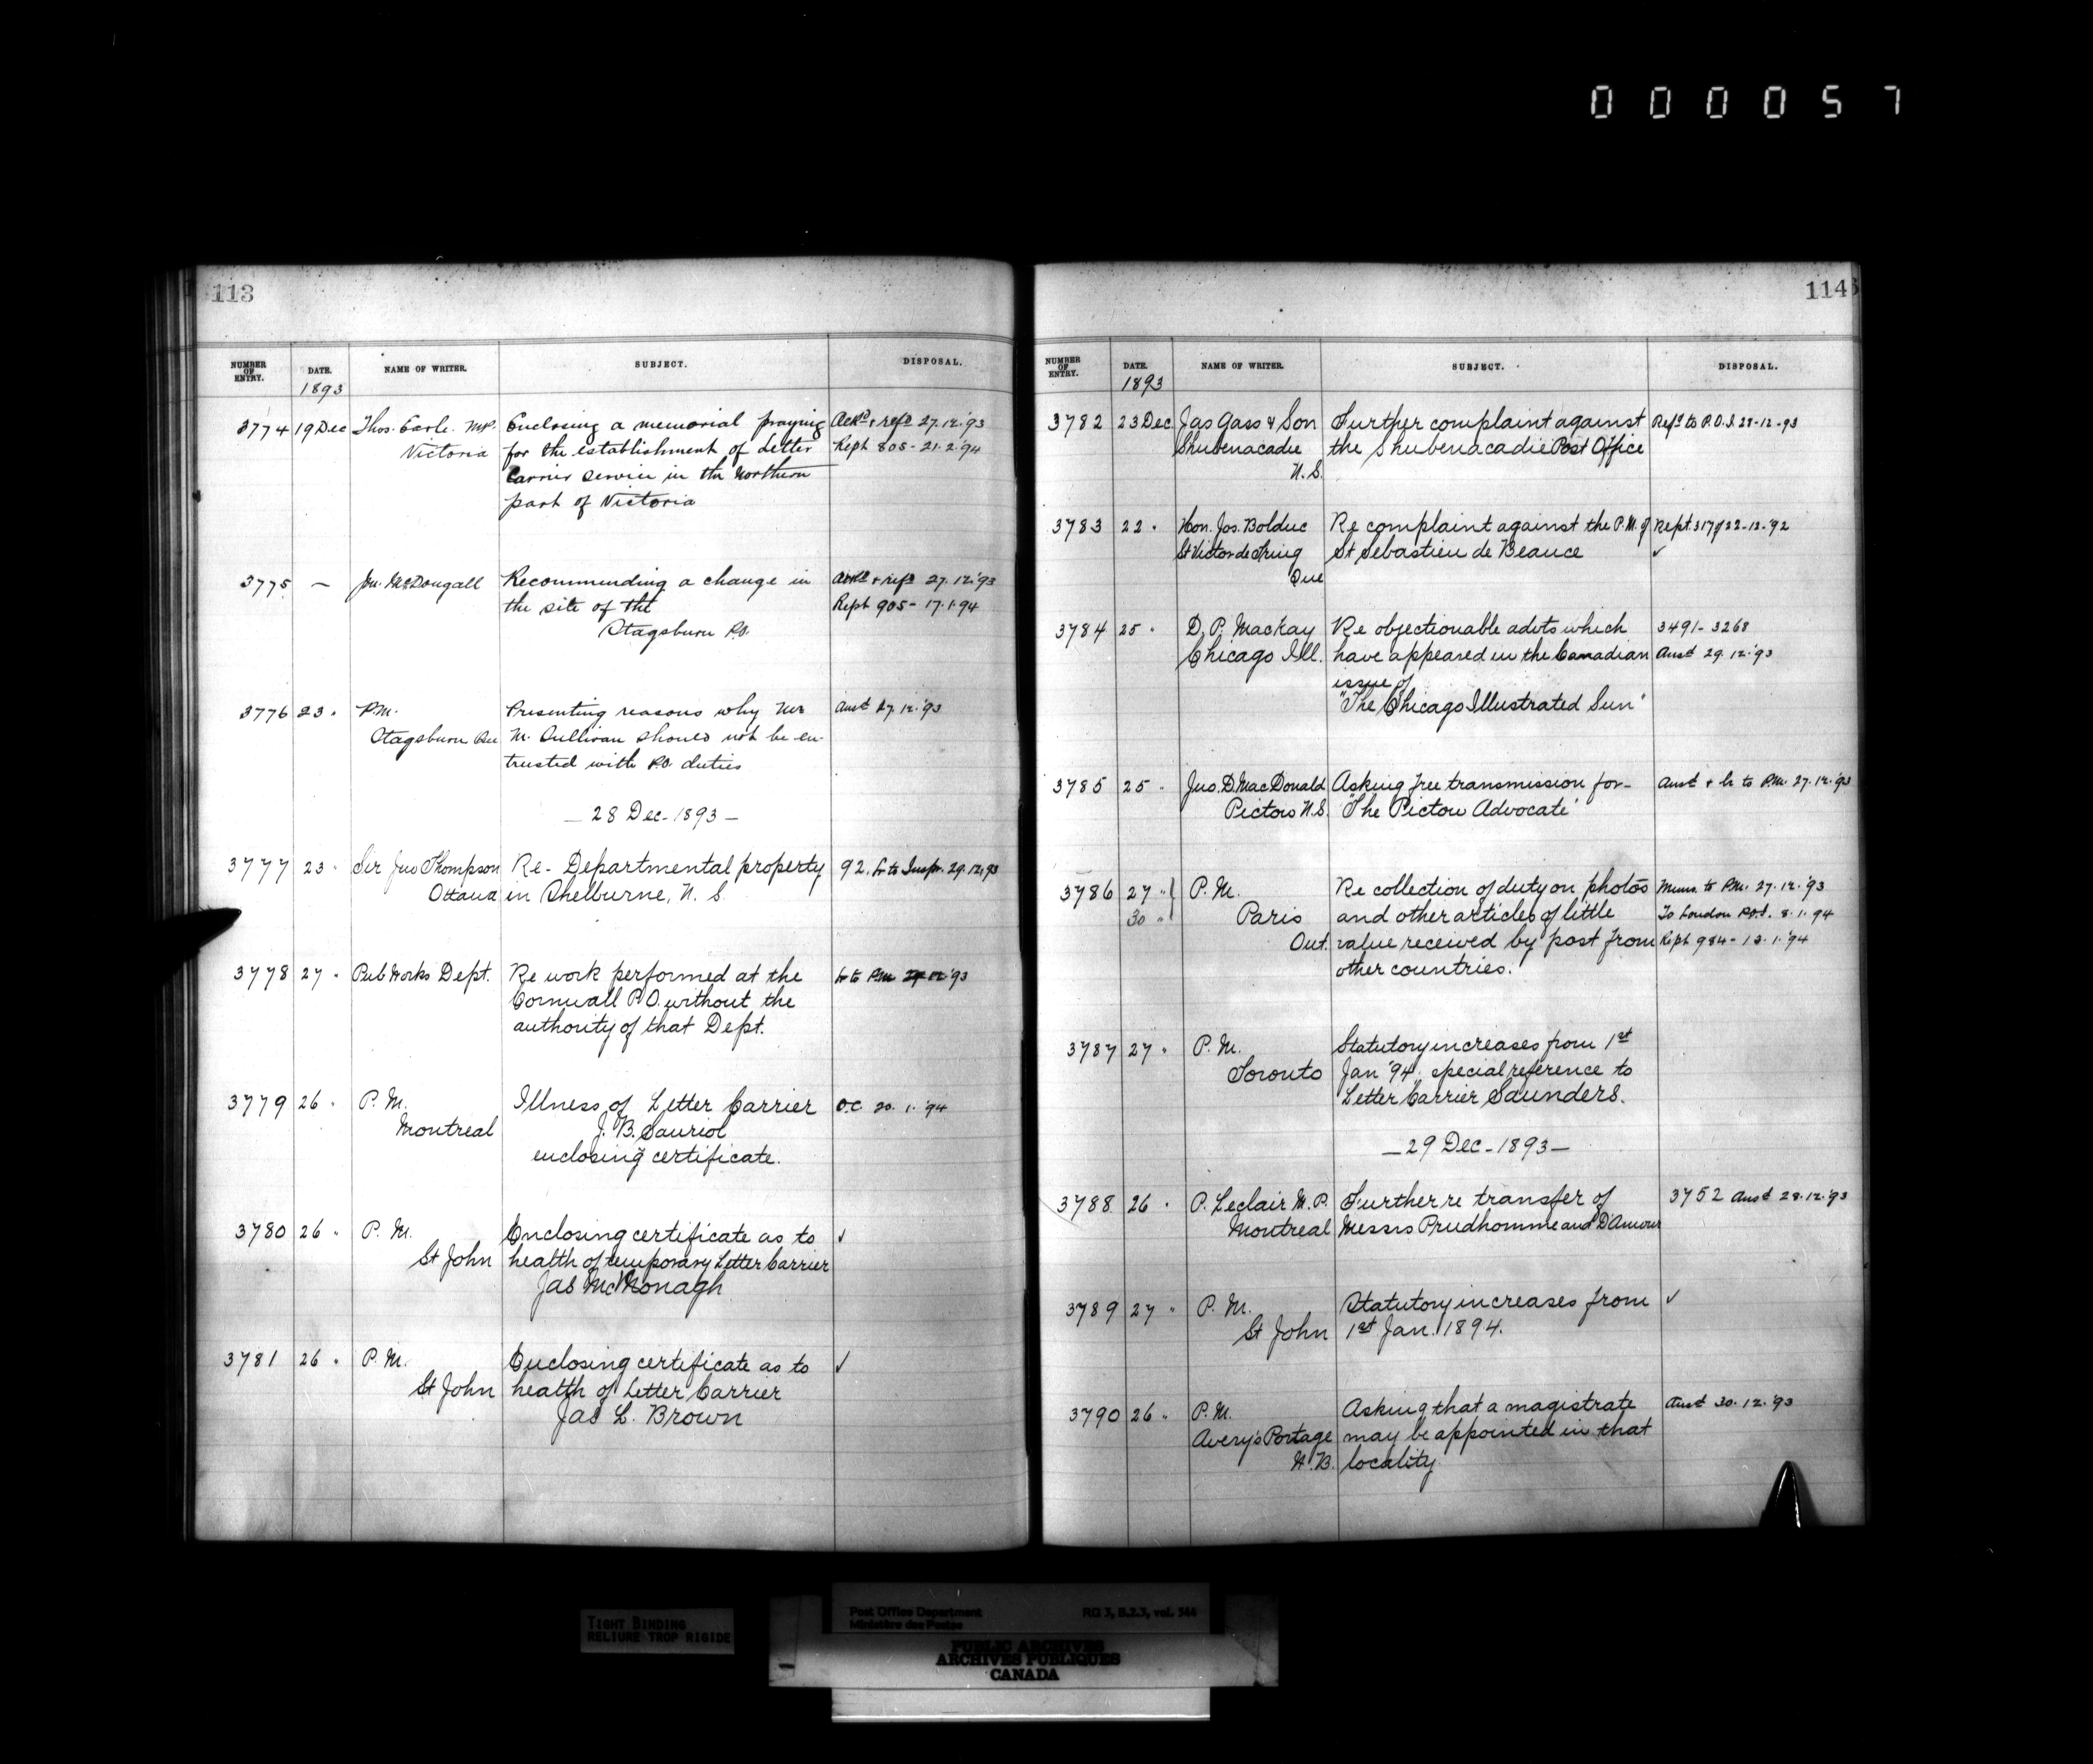 000057
113
NUMBER OF ENTRY. DATE. NAME OF WRITER. SUBJECT. DISPOSAL.
1893
3774 19 Dec Thos. Earle. M.P. Enclosing a memorial praying Ackd & refd 27.12.'93
Victoria for the establishment of Letter Rept 805 - 21.2.'94
Carrier service in the Northern
part of Victoria
3775 — Jn. McDougall Recommending a change in Ackd & refd 27.12.'93
the site of the Rept 905 - 17.1.94
Stagsburn P.O.
3776 23 " P.M. Presenting reasons why Mr Ansd 27.12.'93
Stagsburn Que M. Sullivan should not be en-
trusted with P.O. duties
— 28 Dec - 1893 —
3777 23 " Sir Jno Thompson Re - Departmental property 92. Lr to Inspr. 29.12.93
Ottawa in Shelburne, N. S.
3778 27 " Pub Works Dept. Re work performed at the Lr to P.M. 12.'93
Cornwall P.O. without the
authority of that Dept.
3779 26 " P. M. Illness of Letter Carrier O.C. 20. 1. '94
Montreal J. B. Sauriol
enclosing certificate.
3780 26 " P. M. Enclosing certificate as to ✓
St John health of temporary Letter Carrier
Jas McMonagh
3781 26 " P. M. Enclosing certificate as to ✓
St John health of Letter Carrier
Jas L. Brown
114
NUMBER OF ENTRY. DATE. NAME OF WRITER. SUBJECT. DISPOSAL.
1893
3782 23 Dec Jas Gass & Son Further complaint against Refd to P.O.I. 28-12-93
Shubenacadie the Shubenacadie Post Office
N. S.
3783 22 " Hon. Jos. Bolduc Re complaint against the P.M. of Rept. 317 of 22-12-'92
St Victor de Tring St Sebastien de Beauce ✓
Que
3784 25 " D. P. Mackay Re objectionable advts which 3491 - 3268
Chicago Ill. have appeared in the Canadian Ansd 29.12.'93
issue of
"The Chicago Illustrated Sun"
3785 25 " Jno. D. MacDonald Asking free transmission for - Ansd & lr to P.M. 27.12.'93
Pictou N.S. "The Pictou Advocate"
3786 27 " P. M. Re collection of duty on photos Memo. to P.M. 27.12.'93
30 " Paris and other articles of little To London P.O.I. 8.1.94
Ont. value received by post from Rept 984 - 13.1.'94
other countries.
3787 27 " P. M. Statutory increases from 1st
Toronto Jan '94. special reference to
Letter Carrier Saunders.
— 29 Dec - 1893 —
3788 26 " P. Leclair M.P. Further re transfer of 3752 Ansd 28.12.'93
Montreal Messrs Prudhomme and D'Amour
3789 27 " P. M. Statutory increases from ✓
St John 1st Jan. 1894.
3790 26 " P. M. Asking that a magistrate Ansd 30.12.'93
Avery's Portage may be appointed in that
N.B. locality
TIGHT BINDING
RELIURE TROP RIGIDE
Post Office Department RG 3, B.2.3, vol. 544
Ministère des Postes
PUBLIC ARCHIVES
ARCHIVES PUBLIQUES
CANADA